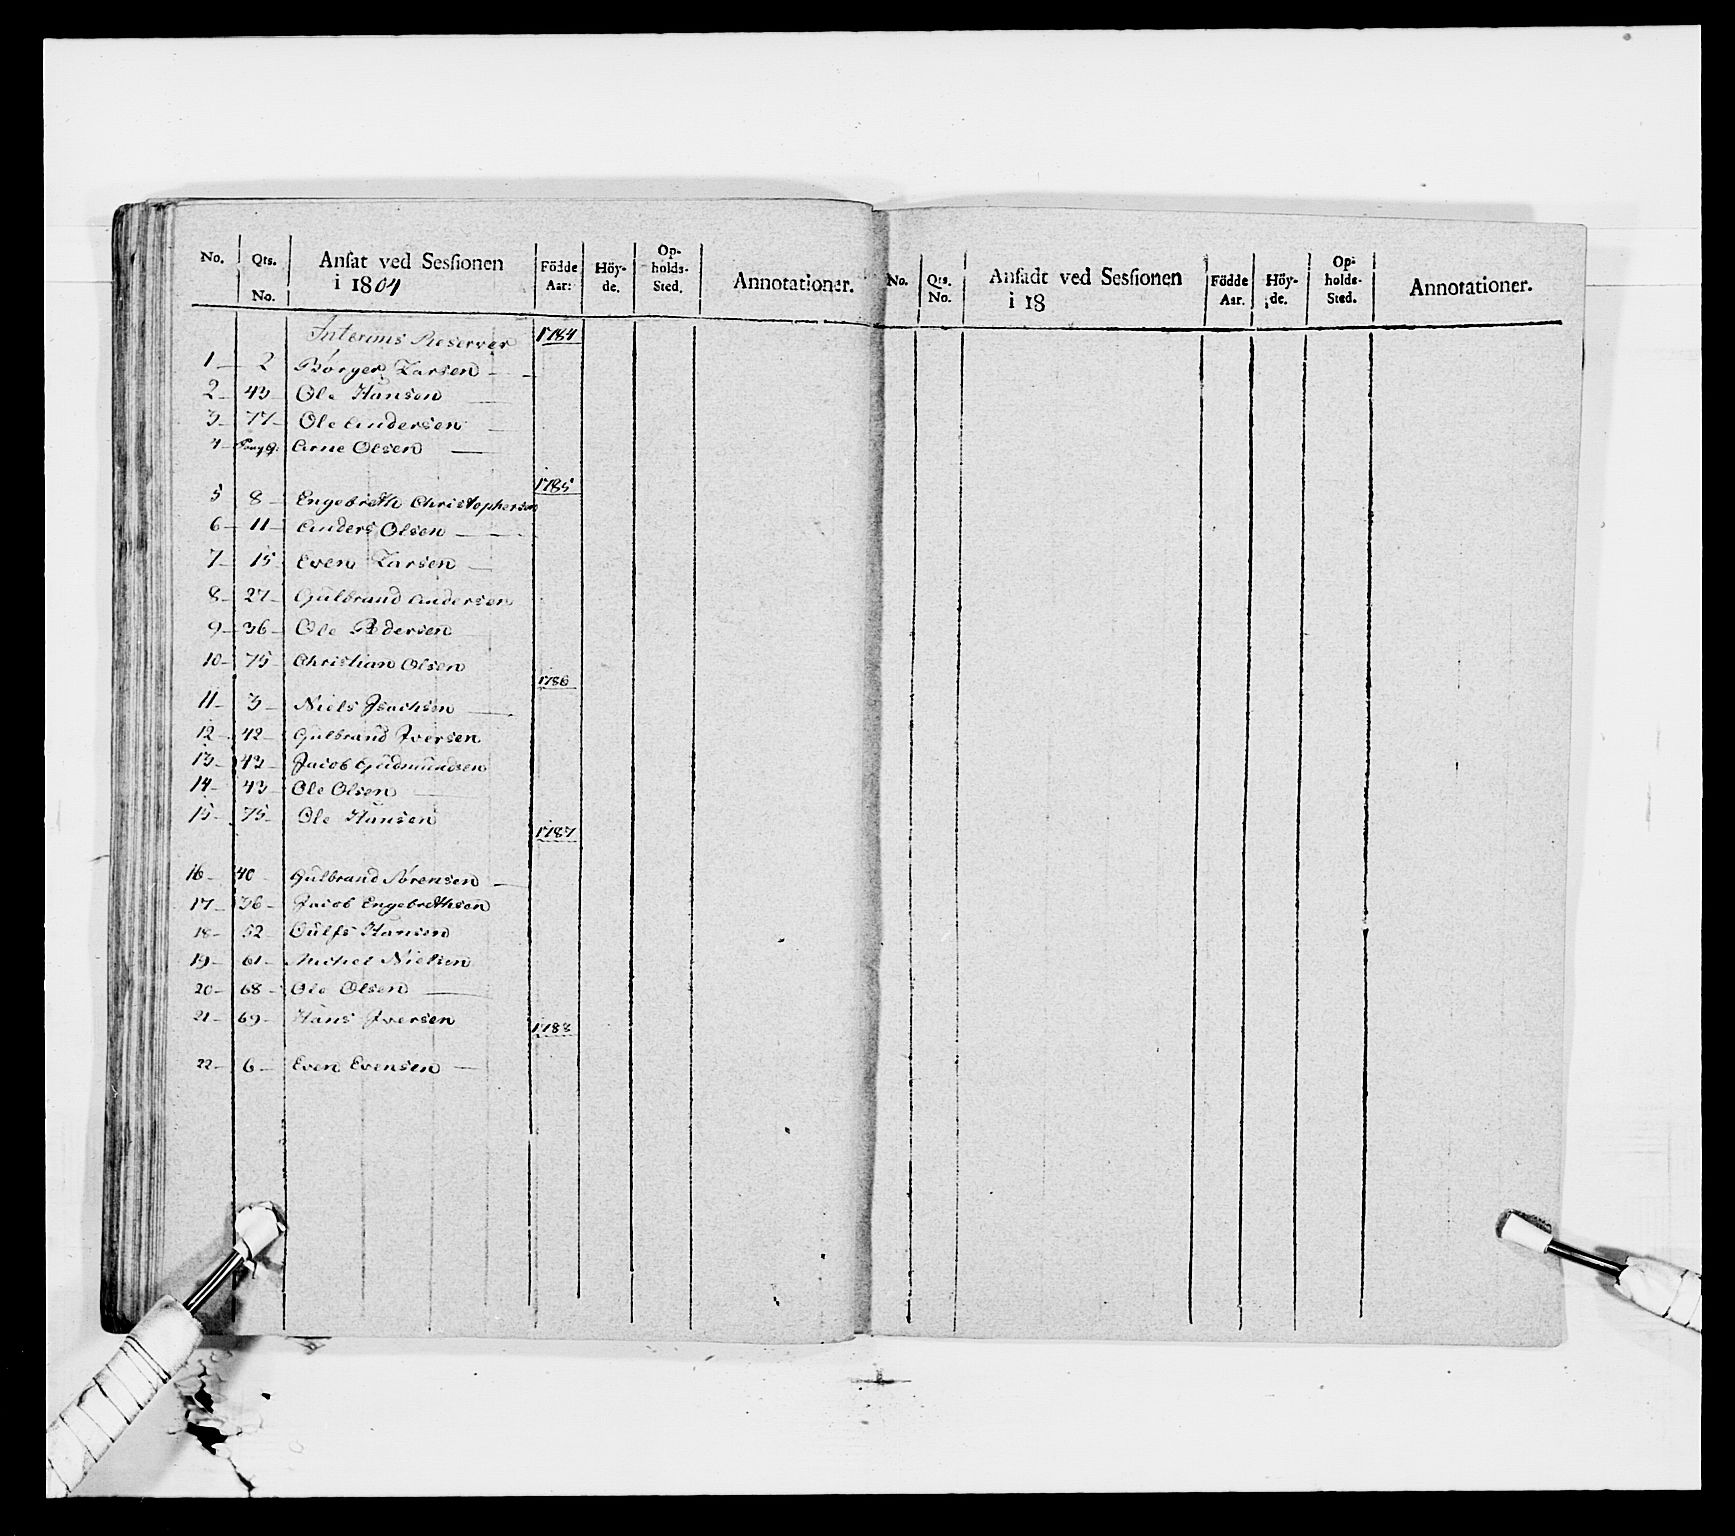 No. Qts. No. Ansat ved Sessionen i 1804 Födde Aar: Höy-de. Op-holds-Sted. Annotationer.
Interims Reserver 1784
1 2 Börger Larsen
2 43 Ole Hansen
3 77 Ole Andersen
4 Arne Olsen
1785
5 8 Engebreth Christophersen
6 11 Anders Olsen
7 15 Even Larsen
8 27 Gulbrand Andersen
9 36 Ole Pedersen
10 75 Christian Olsen
1786
11 3 Niels Isachsen
12 42 Gulbrand Iversen
13 43 Jacob Gudmundsen
14 43 Ole Olsen
15 75 Ole Hansen
1787
16 40 Gulbrand Sørensen
17 36 Jacob Engebrethsen
18 52 Hansen
19 61 Michel Nielsen
20 68 Ole Olsen
21 69 Hans Iversen
1788
22 6 Even Evensen
No. Qts. No. Ansadt ved Sessionen i 18 Födde Aar. Höy-de. Op-holds-Sted. Annotationer.